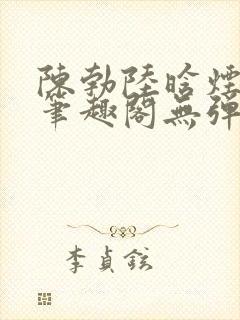 陳勃陸晗煙
筆趣閣無彈
李貞鉉